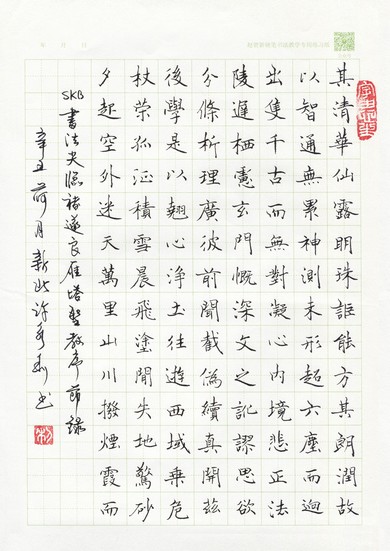 其清華仙露明珠詎能方其朗潤故
以智通無累神測未形超六塵而迥
出隻千古而無對凝心內境悲正法
陵遲栖慮玄門慨深文之訛謬思欲
分條析理廣彼前聞截偽續真開茲
後學是以翹心淨土往遊西域乘危
杖策孤征積雪晨飛塗閒失地驚砂
夕起空外迷天萬里山川撥煙霞而
SKB書法夾臨褚遂良雁塔聖教序節錄
辛丑荷月新北許秀書
年 月 日